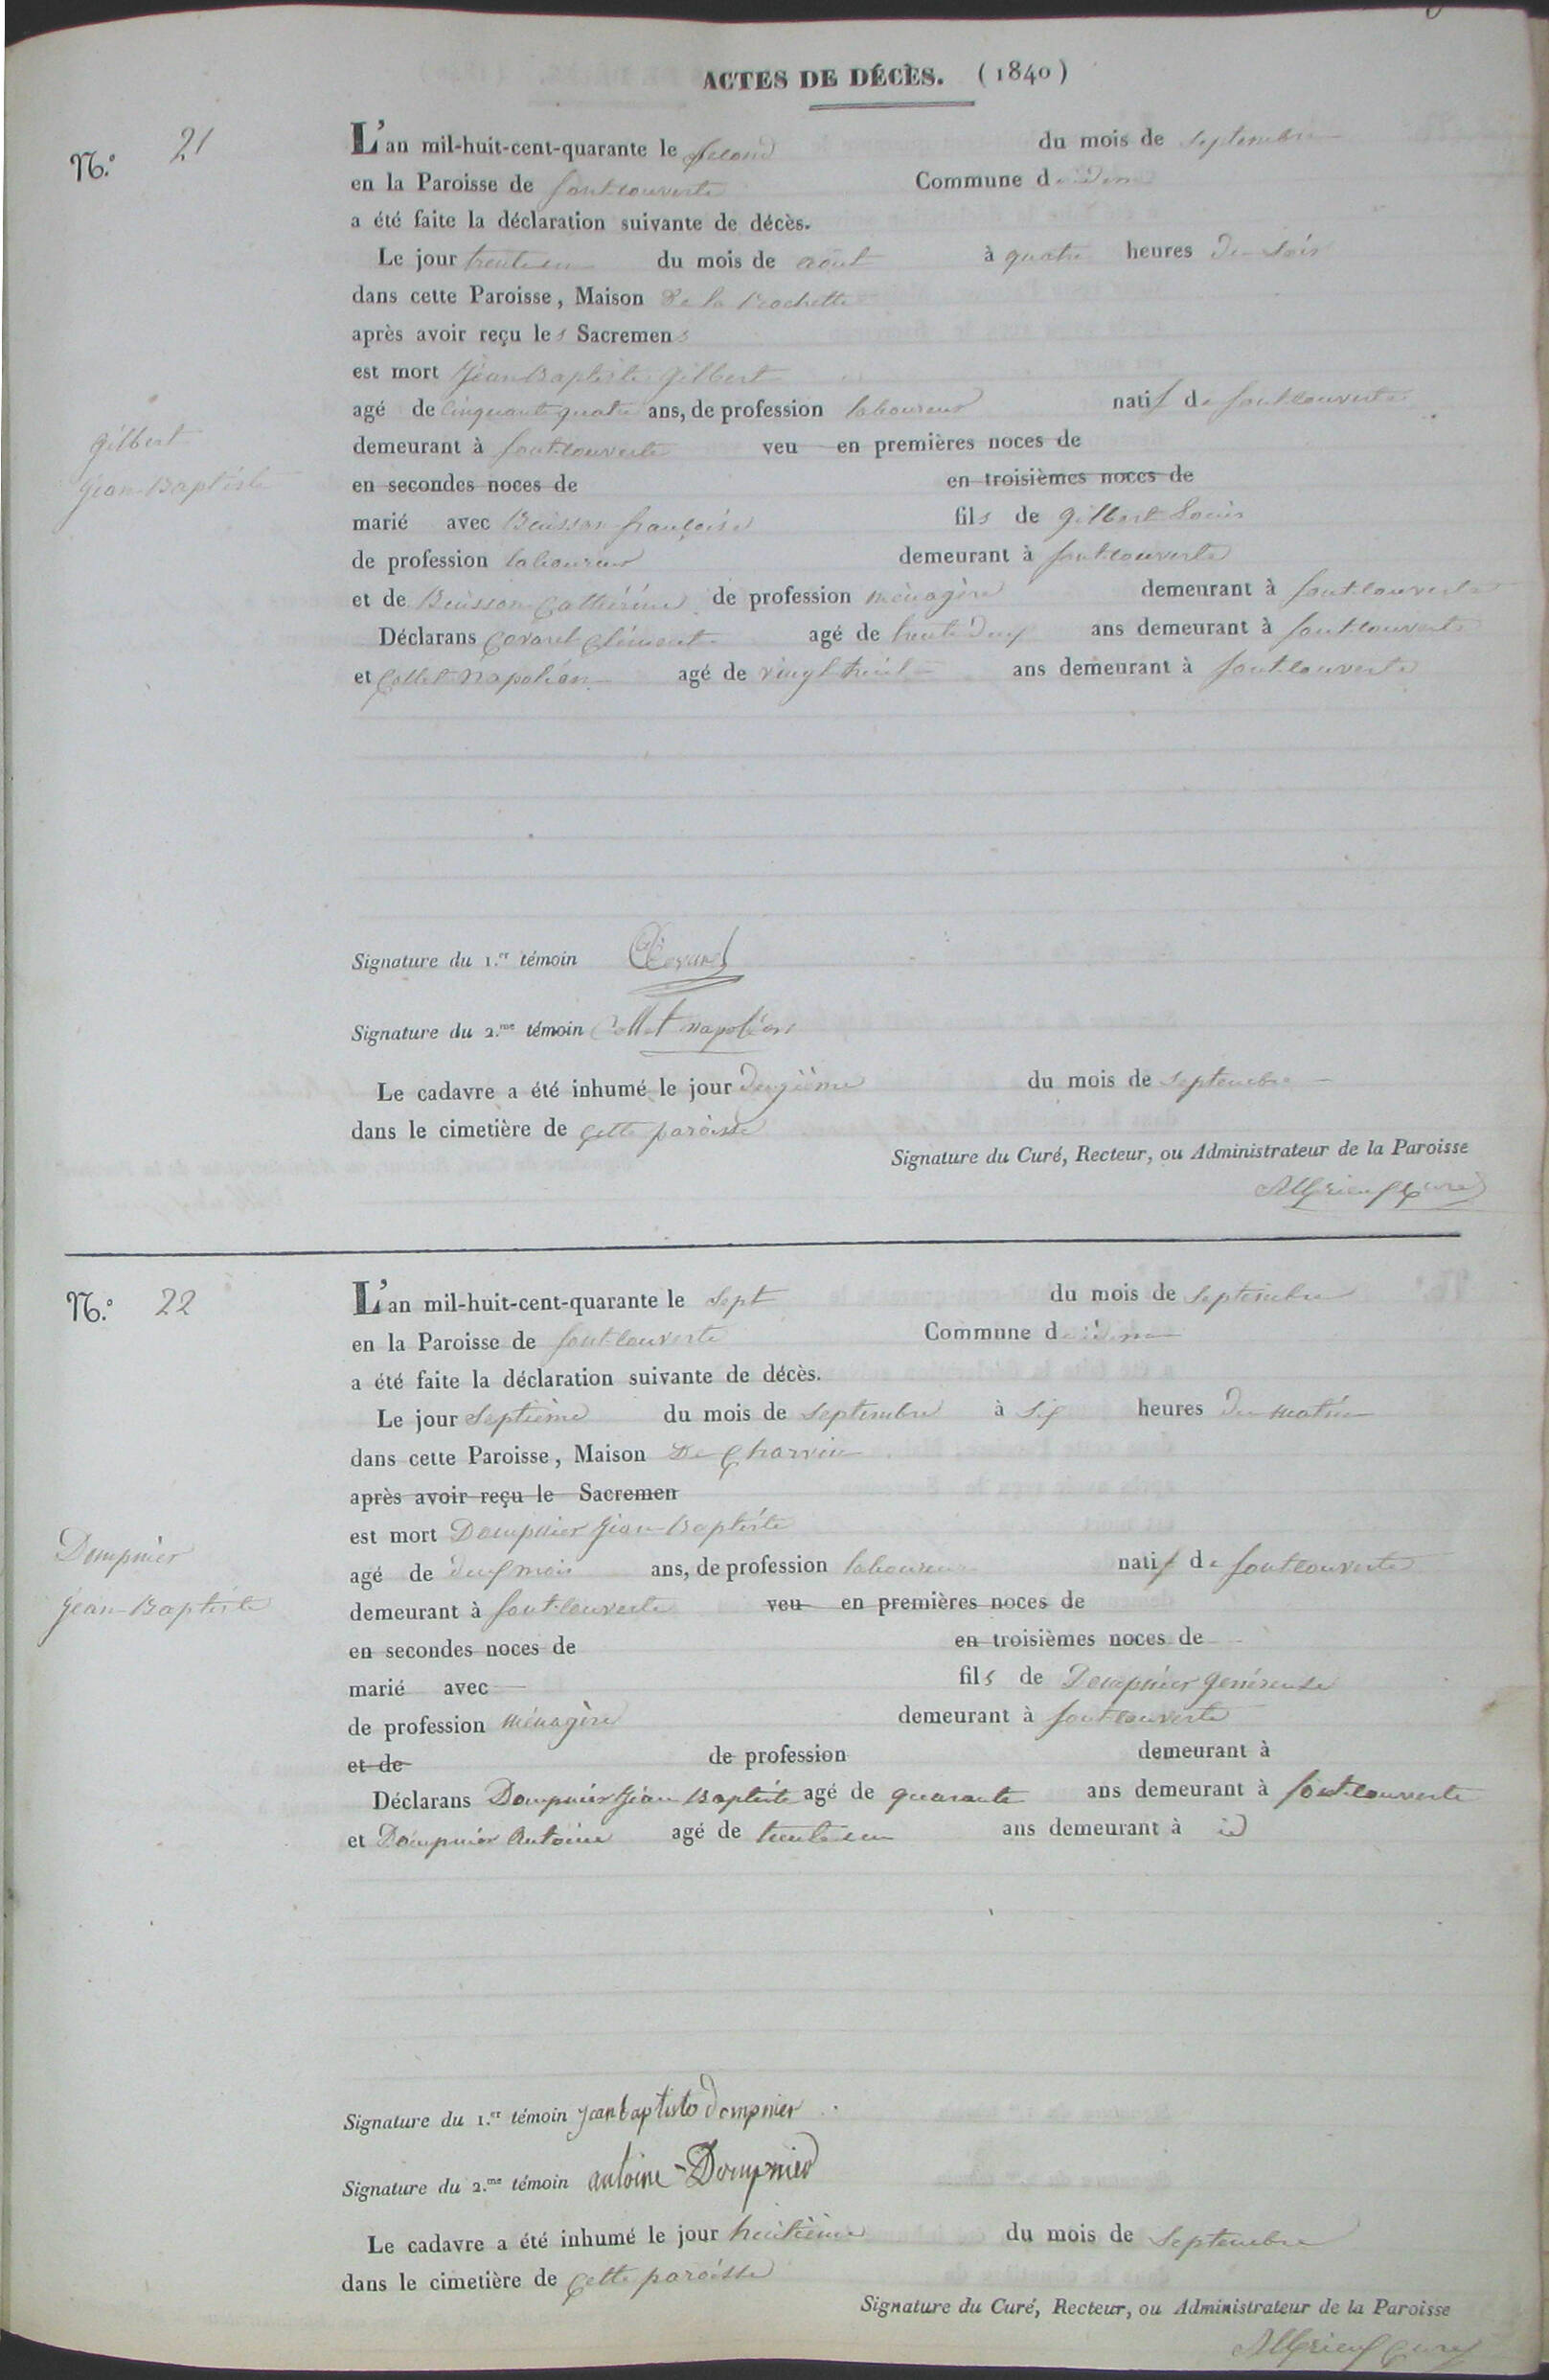 ACTES DE DÉCÈS. (1840)
N.º 21
L'an mil-huit-cent-quarante le second du mois de septembre
en la Paroisse de fontcouverte Commune de idem
a été faite la déclaration suivante de décès.
Le jour trente un du mois de août à quatre heures du soir
dans cette Paroisse, Maison De la Rochette
après avoir reçu les Sacremens
est mort Jean Baptiste Gilbert
agé de cinquante quatre ans, de profession laboureur natif de fontcouverte
Gilbert
Jean-Baptiste
demeurant à fontcouverte veu en premières noces de
en secondes noces de en troisièmes noces de
marié avec Buisson françoise fils de Gilbert Louis
de profession laboureur demeurant à fontcouverte
et de Buisson Catherine de profession ménagère demeurant à fontcouverte
Déclarans Covarel Clément agé de trente deux ans demeurant à fontcouverte
et Collet Napoléon agé de vingt huit ans demeurant à fontcouverte
Signature du 1.er témoin
Signature du 2.me témoin Collet napoléon
Le cadavre a été inhumé le jour deuxième du mois de septembre
dans le cimetière de cette paroisse
Signature du Curé, Recteur, ou Administrateur de la Paroisse
curé
N.º 22
L'an mil-huit-cent-quarante le sept du mois de septembre
en la Paroisse de fontcouverte Commune de idem
a été faite la déclaration suivante de décès.
Le jour septième du mois de septembre à six heures du matin
dans cette Paroisse, Maison De Charvin
après avoir reçu le Sacremen
est mort Dompnier Jean-Baptiste
agé de deux mois ans, de profession laboureur natif de fontcouverte
Dompnier
Jean-Baptiste
demeurant à fontcouverte veu en premières noces de
en secondes noces de en troisièmes noces de
marié avec fils de Dompnier Généreuse
de profession ménagère demeurant à fontcouverte
et de de profession demeurant à
Déclarans Dompnier Jean Baptiste agé de quarante ans demeurant à fontcouverte
et Dompnier Antoine agé de trente un ans demeurant à id
Signature du 1.er témoin Jean baptiste dompnier
Signature du 2.me témoin antoine-Dompnier
Le cadavre a été inhumé le jour huitième du mois de septembre
dans le cimetière de cette paroisse
Signature du Curé, Recteur, ou Administrateur de la Paroisse
curé